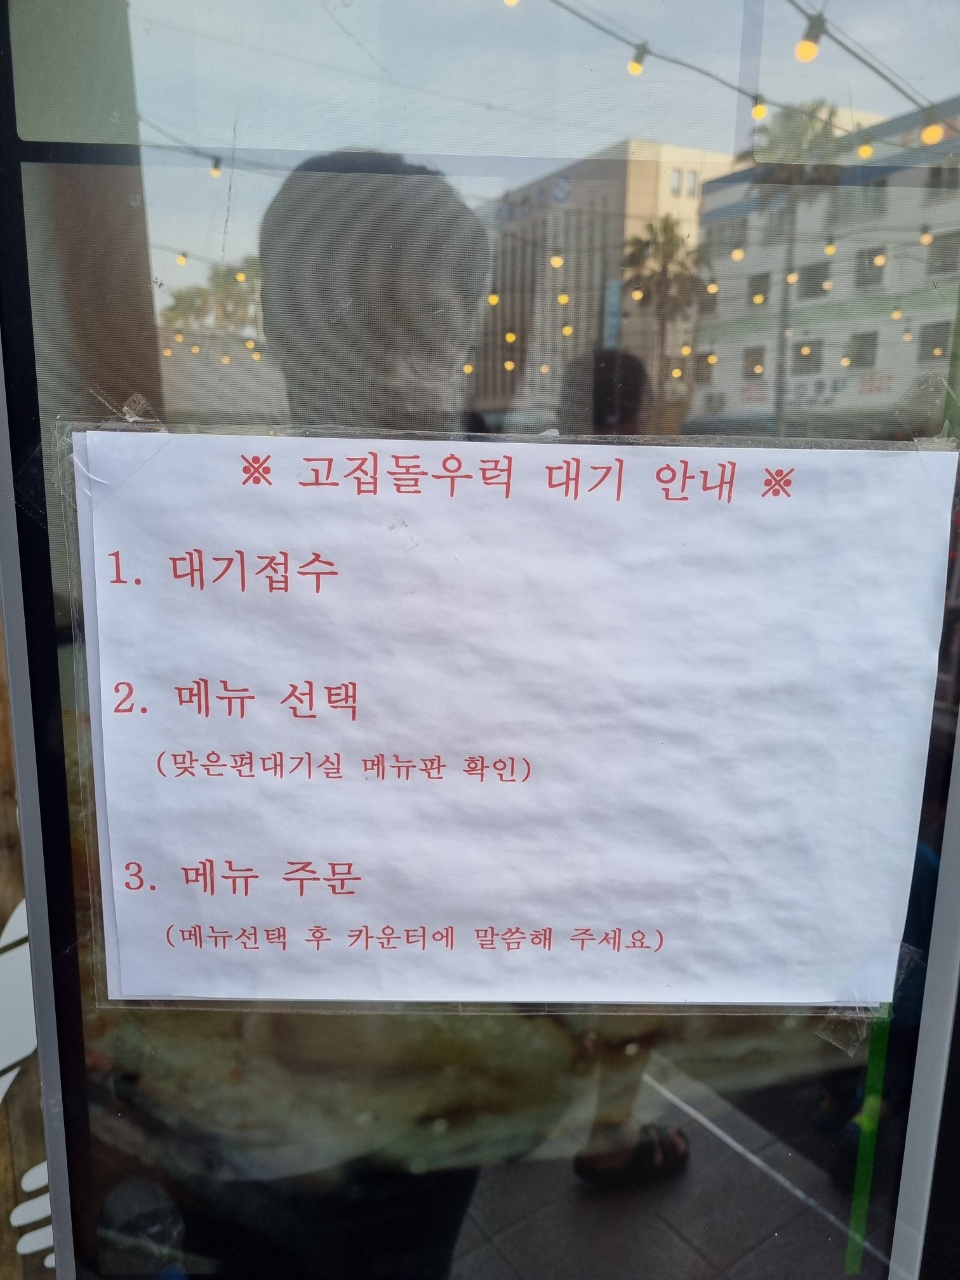 ※ 고집돌우럭 대기 안내 ※
1. 대기접수
2. 메뉴 선택
(맞은편대기실 메뉴판 확인)
3. 메뉴 주문
(메뉴선택 후 카운터에 말씀해 주세요)